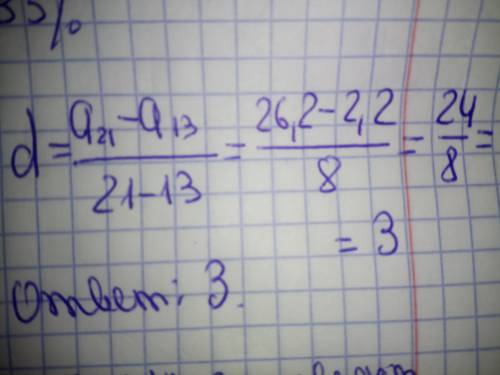 d = (a₂₁ - a₁₃)/(21-13) = (26,2-2,2)/8 = 24/8 =
= 3
Ответ: 3.